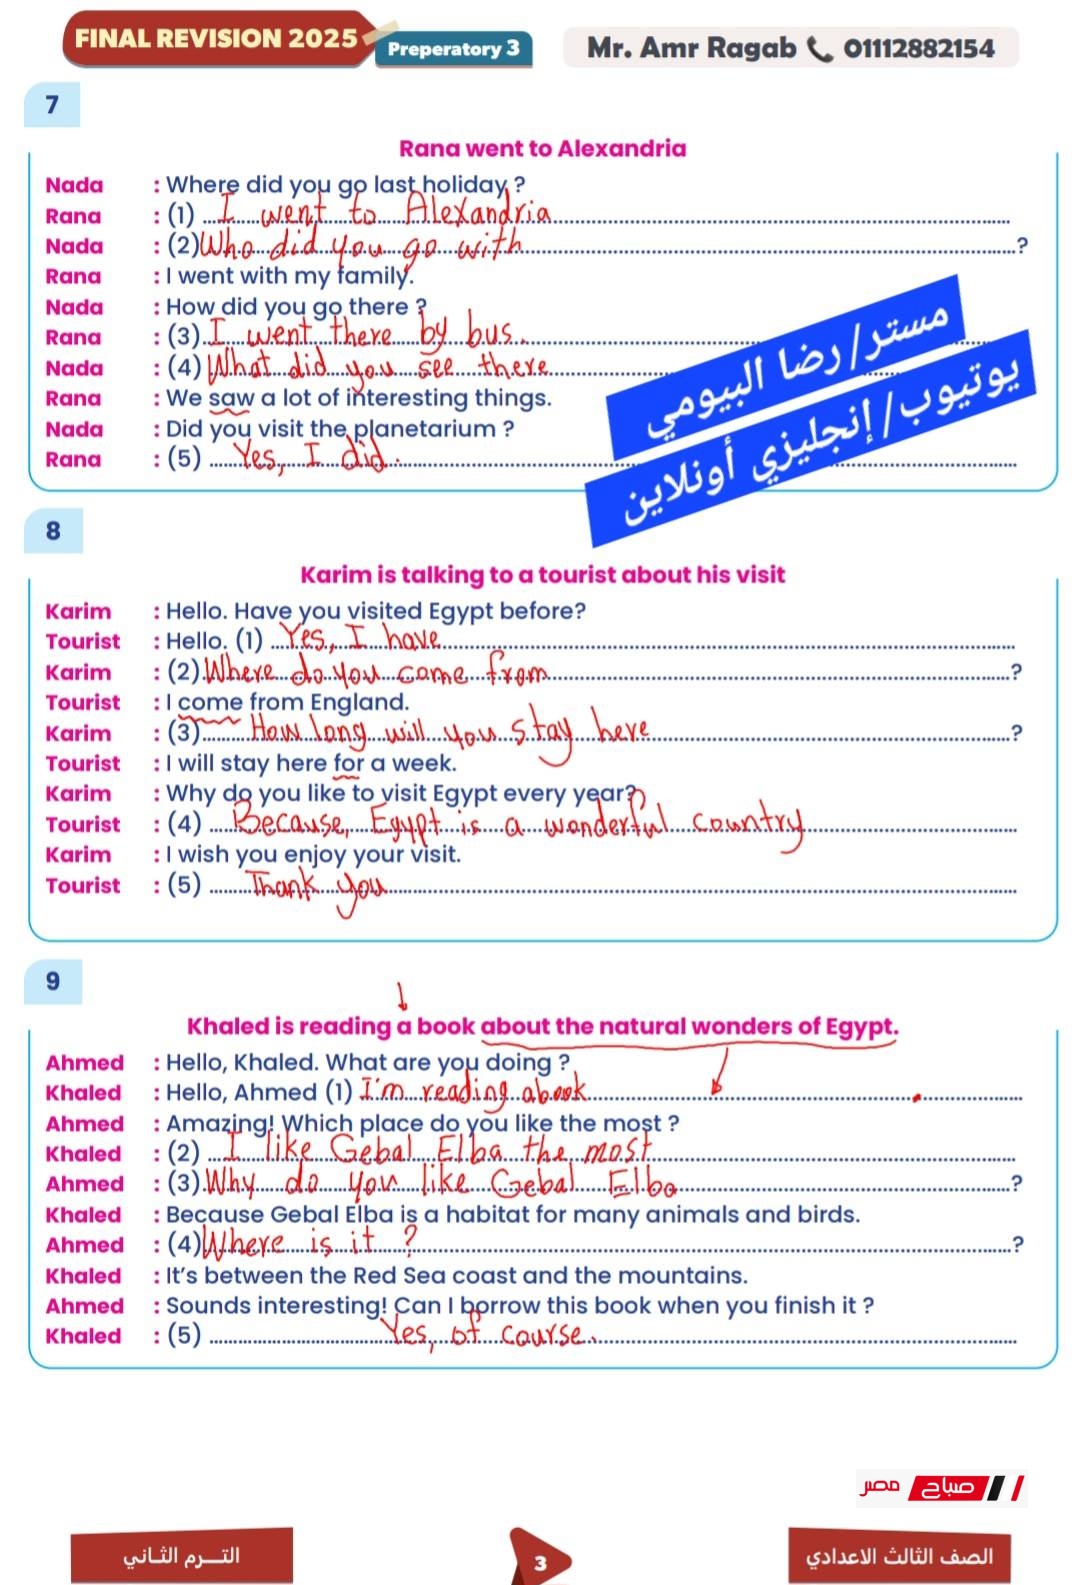 FINAL REVISION 2025 Preperatory 3 Mr. Amr Ragab 01112882154
7
Rana went to Alexandria
Nada : Where did you go last holiday ?
Rana : (1) I went to Alexandria
Nada : (2) Who did you go with ?
Rana : I went with my family.
Nada : How did you go there ?
Rana : (3) I went there by bus.
Nada : (4) What did you see there
Rana : We saw a lot of interesting things.
Nada : Did you visit the planetarium ?
Rana : (5) Yes, I did.
مستر/ رضا البيومي
يوتيوب/ إنجليزي أونلاين
8
Karim is talking to a tourist about his visit
Karim : Hello. Have you visited Egypt before?
Tourist : Hello. (1) Yes, I have
Karim : (2) Where do you come from ?
Tourist : I come from England.
Karim : (3) How long will you stay here ?
Tourist : I will stay here for a week.
Karim : Why do you like to visit Egypt every year?
Tourist : (4) Because, Egypt is a wonderful country
Karim : I wish you enjoy your visit.
Tourist : (5) Thank you
9
Khaled is reading a book about the natural wonders of Egypt.
Ahmed : Hello, Khaled. What are you doing ?
Khaled : Hello, Ahmed (1) I'm reading a book
Ahmed : Amazing! Which place do you like the most ?
Khaled : (2) I like Gebal Elba the most
Ahmed : (3) Why do you like Gebal Elba ?
Khaled : Because Gebal Elba is a habitat for many animals and birds.
Ahmed : (4) Where is it ? ?
Khaled : It's between the Red Sea coast and the mountains.
Ahmed : Sounds interesting! Can I borrow this book when you finish it ?
Khaled : (5) Yes, of course.
صباح مصر
الصف الثالث الاعدادي 3 التـــرم الثـاني